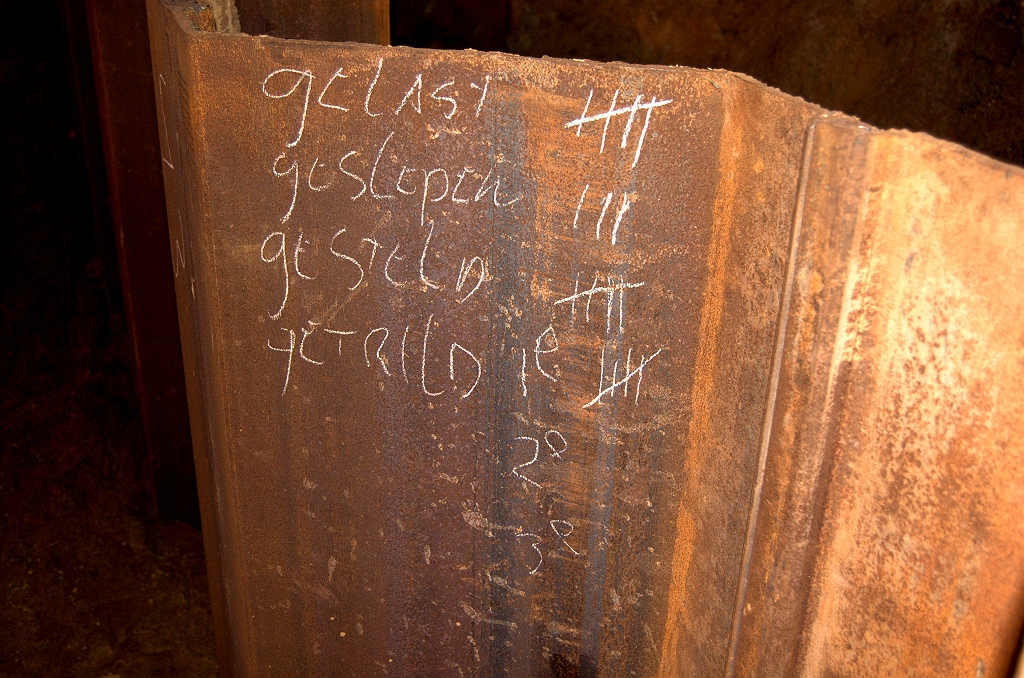 gELASt 卌
gESlEpEn III
gESTElD 卌
gETRIlD 1e 卌
2e
3e